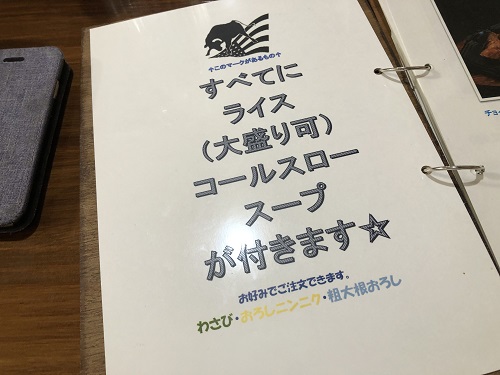 ↑このマークがあるもの↑
すべてに
ライス
（大盛り可）
コールスロー
スープ
が付きます☆
お好みでご注文できます。
わさび・おろしニンニク・粗大根おろし
チョ